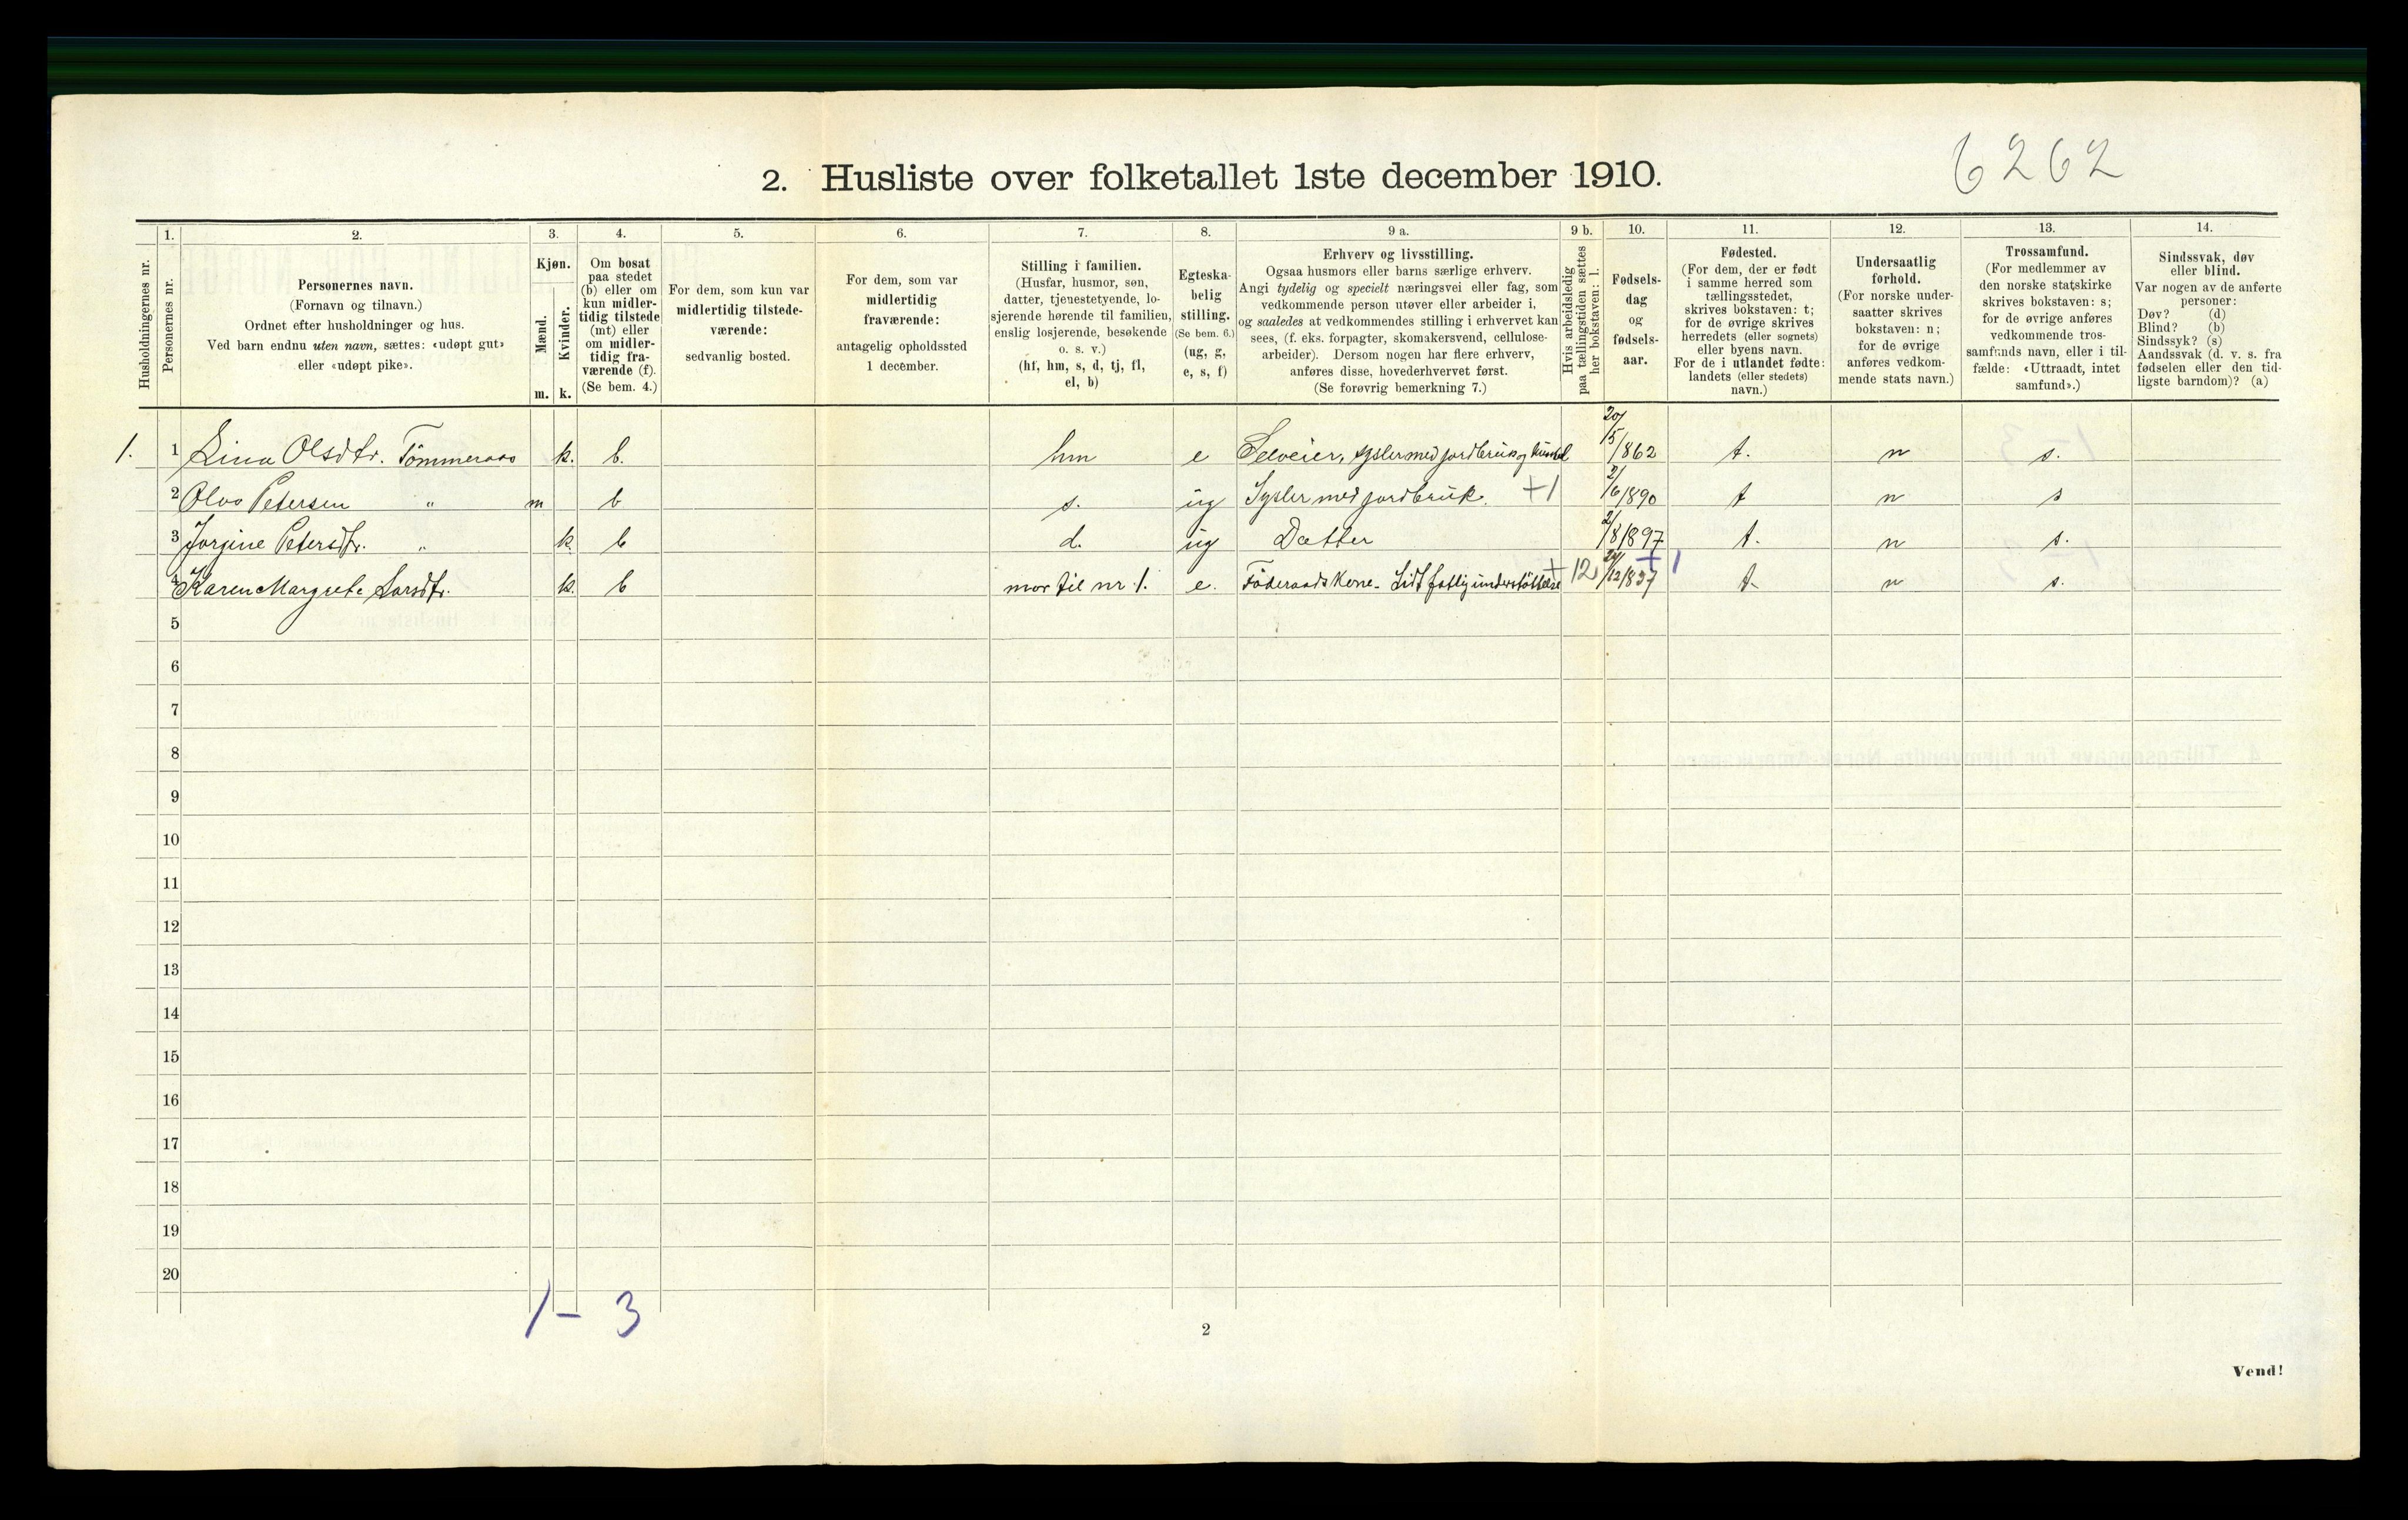 6262
2. Husliste over folketallet 1ste december 1910.
Husholdningernes nr.
1.
Personernes nr.
2.
Personernes navn.
(Fornavn og tilnavn.)
Ordnet efter husholdninger og hus.
Ved barn endnu uten navn, sættes: «udøpt gut»
eller «udøpt pike».
3.
Kjøn.
Mænd.
Kvinder.
m. k.
4.
Om bosat
paa stedet
(b) eller om
kun midler-
tidig tilstede
(mt) eller
om midler-
tidig fra-
værende (f).
(Se bem. 4.)
5.
For dem, som kun var
midlertidig tilstede-
værende:
sedvanlig bosted.
6.
For dem, som var
midlertidig
fraværende:
antagelig opholdssted
1 december.
7.
Stilling i familien.
(Husfar, husmor, søn,
datter, tjenestetyende, lo-
sjerende hørende til familien,
enslig losjerende, besøkende
o. s. v.)
(hf, hm, s, d, tj, fl,
el, b)
8.
Egteska-
belig
stilling.
(Se bem. 6.)
(ug, g,
e, s, f)
9 a.
Erhverv og livsstilling.
Ogsaa husmors eller barns særlige erhverv.
Angi tydelig og specielt næringsvei eller fag, som
vedkommende person utøver eller arbeider i,
og saaledes at vedkommendes stilling i erhvervet kan
sees, (f. eks. forpagter, skomakersvend, cellulose-
arbeider). Dersom nogen har flere erhverv,
anføres disse, hovederhvervet først.
(Se forøvrig bemerkning 7.)
9 b.
Hvis arbeidsledig
paa tællingstiden sættes
her bokstaven: l.
10.
Fødsels-
dag
og
fødsels-
aar.
11.
Fødested.
(For dem, der er født
i samme herred som
tællingsstedet,
skrives bokstaven: t;
for de øvrige skrives
herredets (eller sognets)
eller byens navn.
For de i utlandet fødte:
landets (eller stedets)
navn.)
12.
Undersaatlig
forhold.
(For norske under-
saatter skrives
bokstaven: n;
for de øvrige
anføres vedkom-
mende stats navn.)
13.
Trossamfund.
(For medlemmer av
den norske statskirke
skrives bokstaven: s;
for de øvrige anføres
vedkommende tros-
samfunds navn, eller i til-
fælde: «Uttraadt, intet
samfund».)
14.
Sindssvak, døv
eller blind.
Var nogen av de anførte
personer:
Døv? (d)
Blind? (b)
Sindssyk? (s)
Aandssvak (d. v. s. fra
fødselen eller den tid-
ligste barndom)? (a)
1. 1 Lina Olsdtr. Tömmeraas k. b. hm e Selveier, sysler med jordbruk og kustel 20/5/862 t. n s.
2 Olvo Petersen " m b s. ug Sysler med jordbruk. +1 2/6/890 t n s
3 Jorgine Petersdtr. " k. b d. ug Datter 2/8/897 t. n s.
4 Karen Margrete Larsdtr. k. b mor til nr 1. e. Föderaadskone - Lidt fattigunderstöttelse + 12 24/12/837 +1 t. n s.
5
6
7
8
9
10
11
12
13
14
15
16
17
18
19
20
1 – 3
2
Vend!